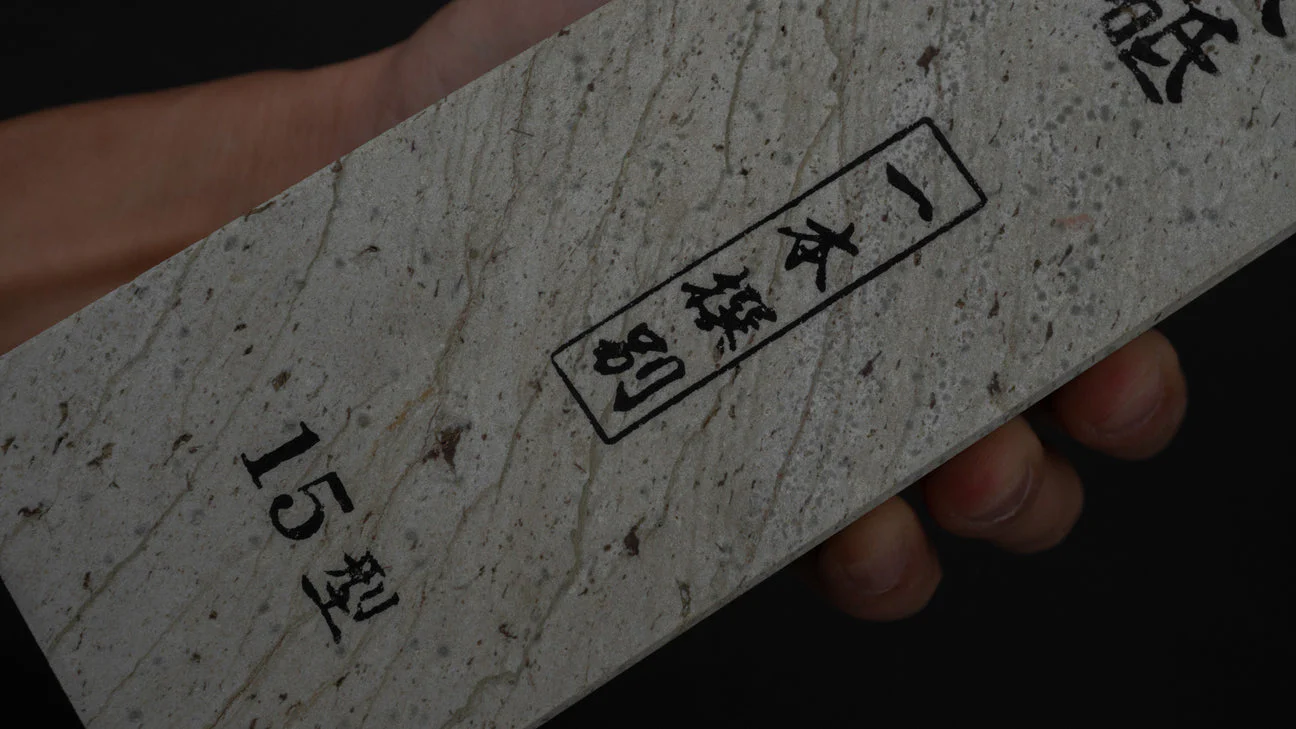 砥
一本撰別
15型